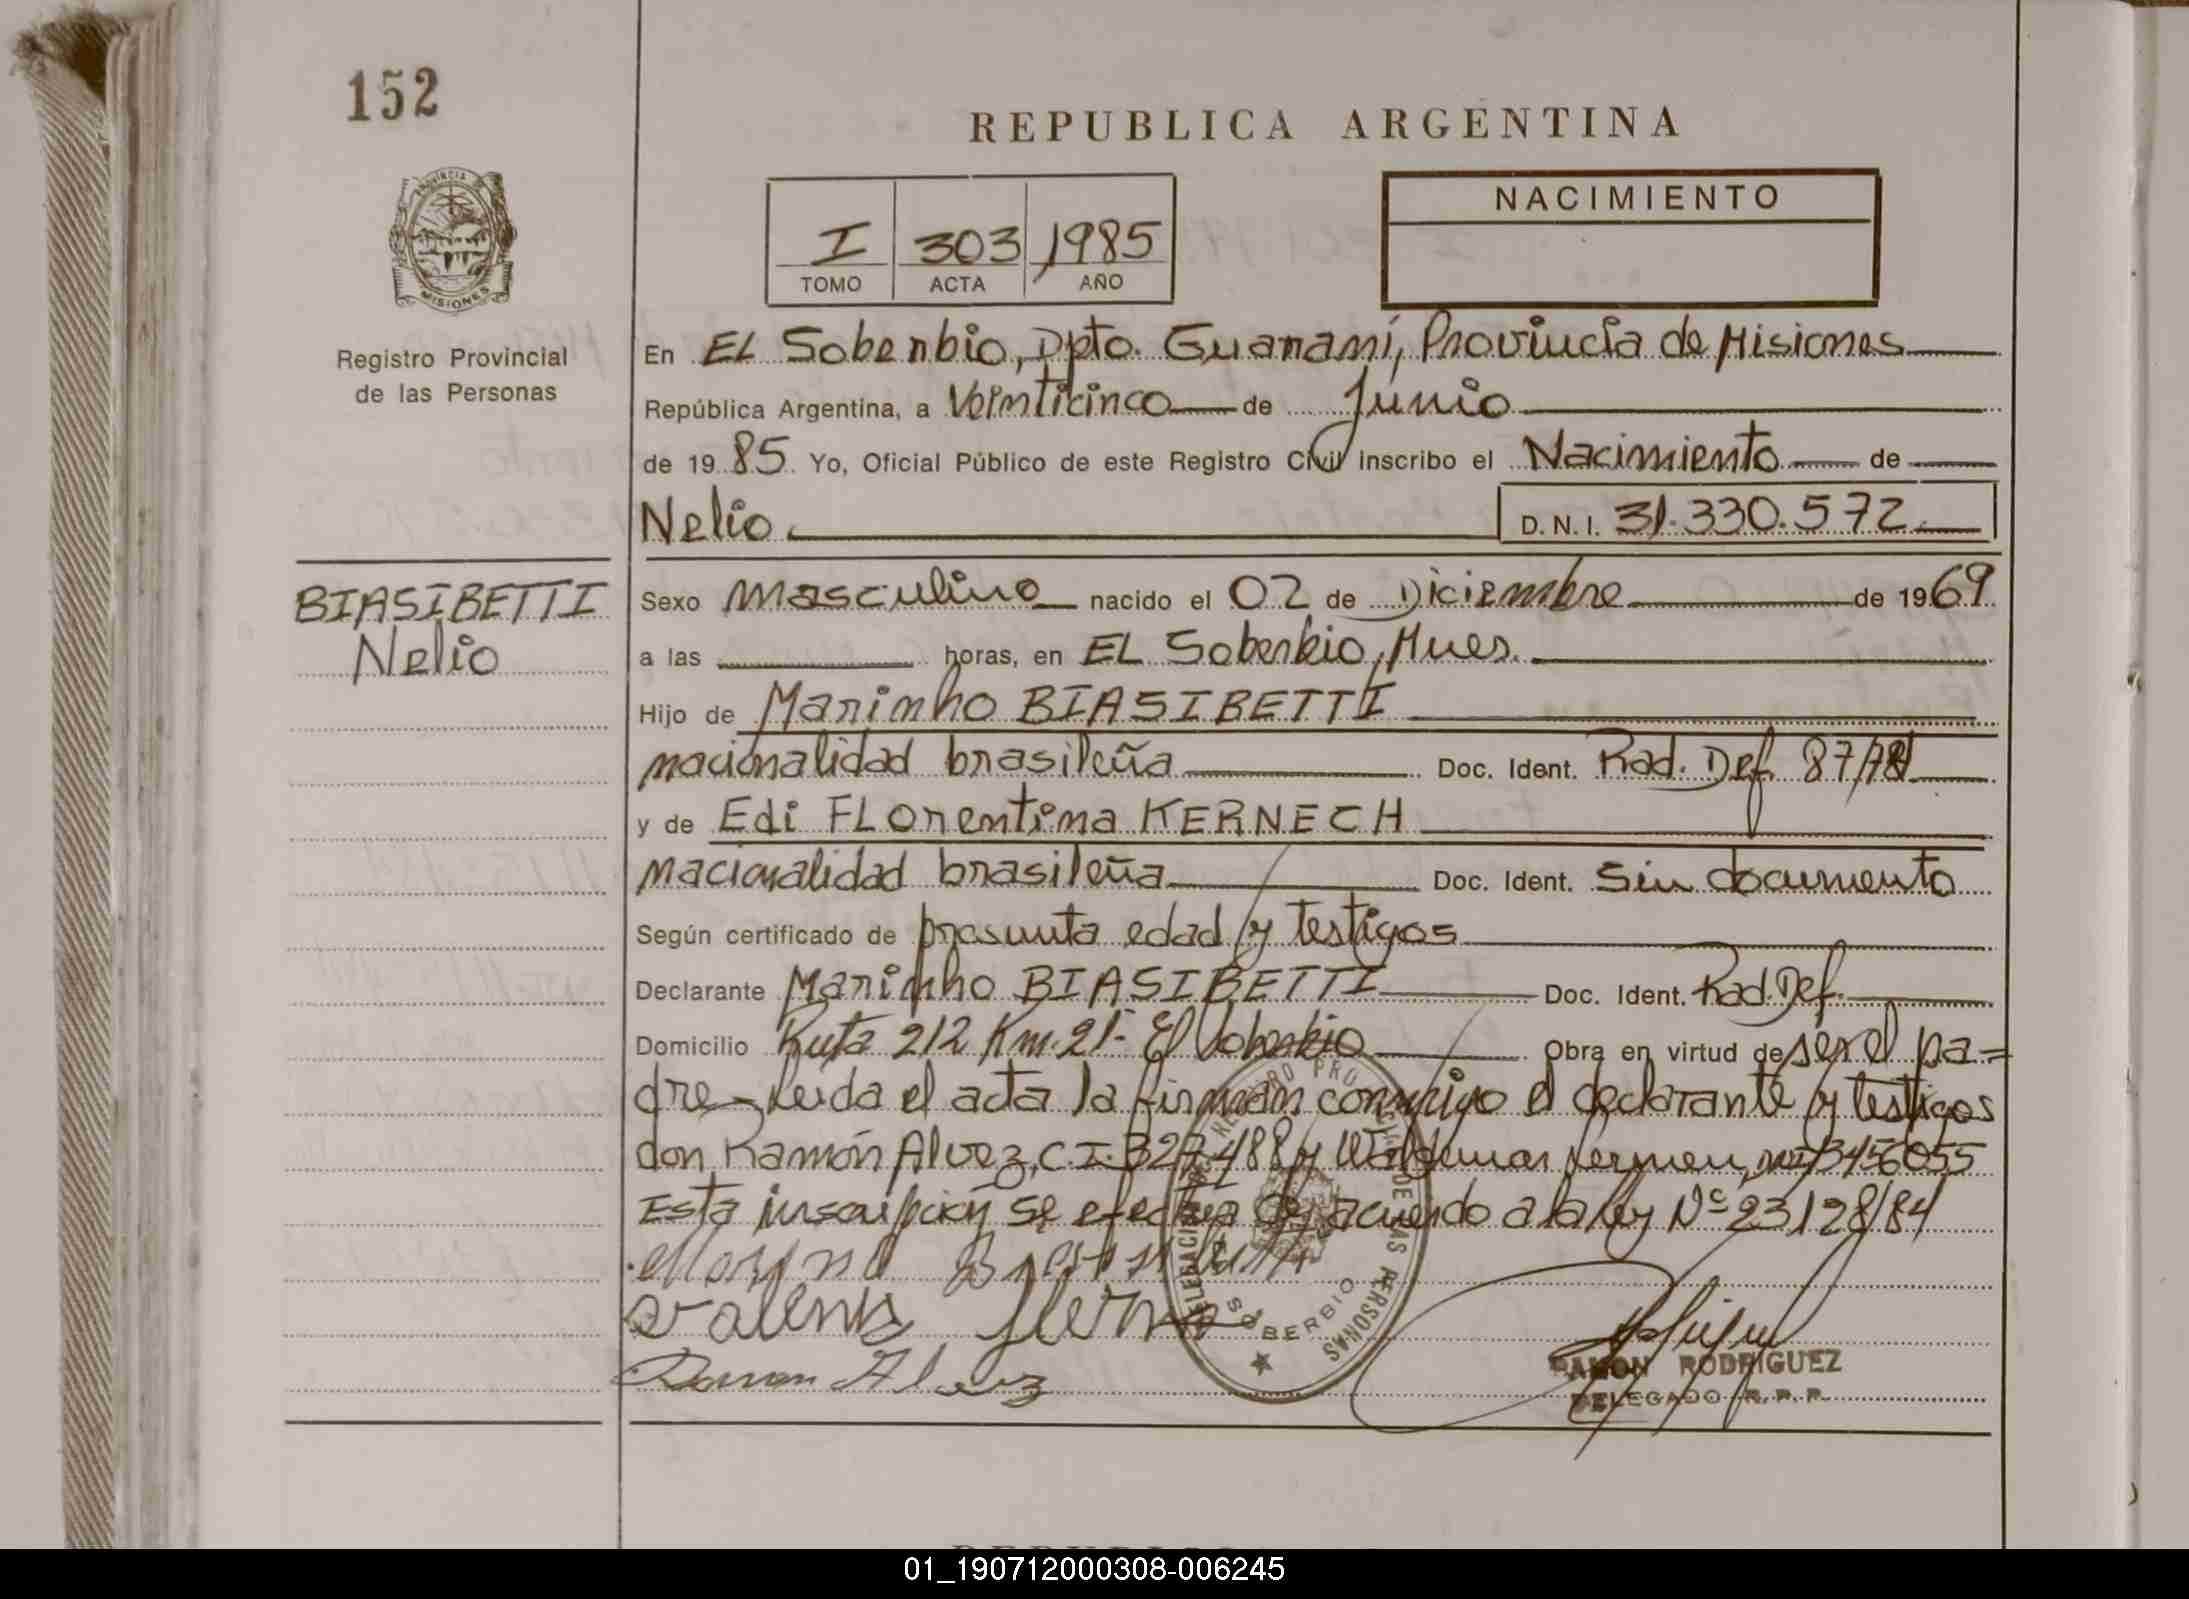 152
REPUBLICA ARGENTINA
PROVINCIA DE
MISIONES
Registro Provincial
de las Personas
I 303 1985
TOMO ACTA AÑO
NACIMIENTO
En EL Soberbio, Dpto. Guaraní, Provincia de Misiones
República Argentina, a Veinticinco de Junio
de 1985 Yo, Oficial Público de este Registro Civil inscribo el Nacimiento de
Nelio D.N.I. 31.330.572
BIASIBETTI
Nelio
Sexo masculino nacido el 02 de Diciembre de 1969
a las horas, en EL Soberbio, Mnes.
Hijo de Marinho BIASIBETTI
nacionalidad brasileña Doc. Ident. Rad. Def. 87/78
y de Edi FLorentina KERNECH
nacionalidad brasileña Doc. Ident. Sin documento
Según certificado de presunta edad y testigos
Declarante Marinho BIASIBETTI Doc. Ident. Rad. Def.
Domicilio Ruta 212 Km. 21- El Soberbio Obra en virtud de ser el pa=
dre - Leida el acta la firman conmigo el declarante y testigos
don Ramón Alvez, C.I. 327.488 y
Esta inscripción se efectua de acuerdo a la ley Nº 23128/84
Ramon Alvez
SOBERBIO
DE LAS PERSONAS
RAMON RODRIGUEZ
DELEGADO R.P.P.
01_190712000308-006245